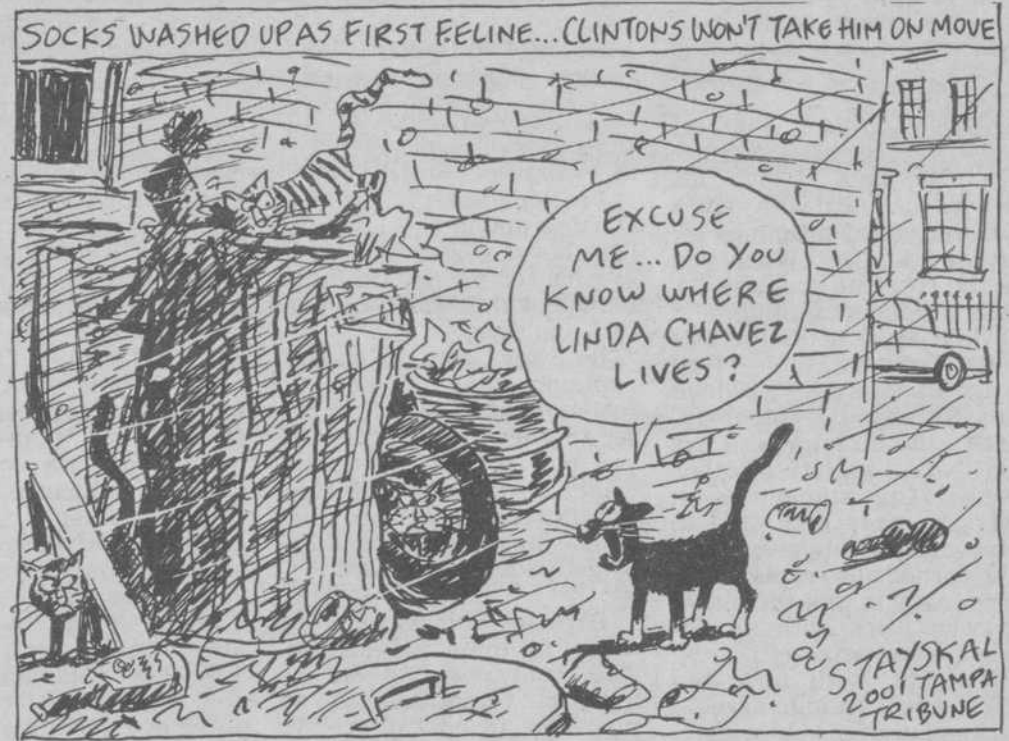 SOCKS WASHED UP AS FIRST FELINE...CLINTONS WON'T TAKE HIM ON MOVE
EXCUSE
ME... DO YOU
KNOW WHERE
LINDA CHAVEZ
LIVES?
STAYSKAL
2001 TAMPA
TRIBUNE